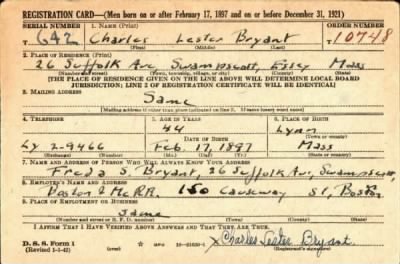 REGISTRATION CARD—(Men born on or after February 17, 1897 and on or before December 31, 1921)
SERIAL NUMBER 1. NAME (Print) ORDER NUMBER
T 642 Charles Lester Bryant T10748
(First) (Middle) (Last)
2. PLACE OF RESIDENCE (Print)
26 Suffolk Av, Swampscott, Essex Mass
(Number and street) (Town, township, village, or city) (County) (State)
[THE PLACE OF RESIDENCE GIVEN ON THE LINE ABOVE WILL DETERMINE LOCAL BOARD
JURISDICTION; LINE 2 OF REGISTRATION CERTIFICATE WILL BE IDENTICAL]
3. MAILING ADDRESS
Same
[Mailing address if other than place indicated on line 2. If same insert word same]
4. TELEPHONE 5. AGE IN YEARS 6. PLACE OF BIRTH
44 Lynn
DATE OF BIRTH (Town or county)
Ly 2-9466 Feb. 17, 1897 Mass
(Exchange) (Number) (Mo.) (Day) (Yr.) (State or country)
7. NAME AND ADDRESS OF PERSON WHO WILL ALWAYS KNOW YOUR ADDRESS
Freda S. Bryant, 26 Suffolk Av, Swampscott,
8. EMPLOYER'S NAME AND ADDRESS
Boston & Me RR. 150 Causeway St, Boston
9. PLACE OF EMPLOYMENT OR BUSINESS
Same
(Number and street or R. F. D. number) (Town) (County) (State)
I AFFIRM THAT I HAVE VERIFIED ABOVE ANSWERS AND THAT THEY ARE TRUE.
D. S. S. Form 1
(Revised 1-1-42) 16-21630-1 x Charles Lester Bryant
(Registrant's signature)